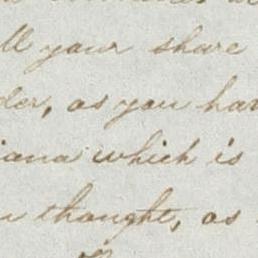 ll your share
der, as you hav
iana which is
thought, as